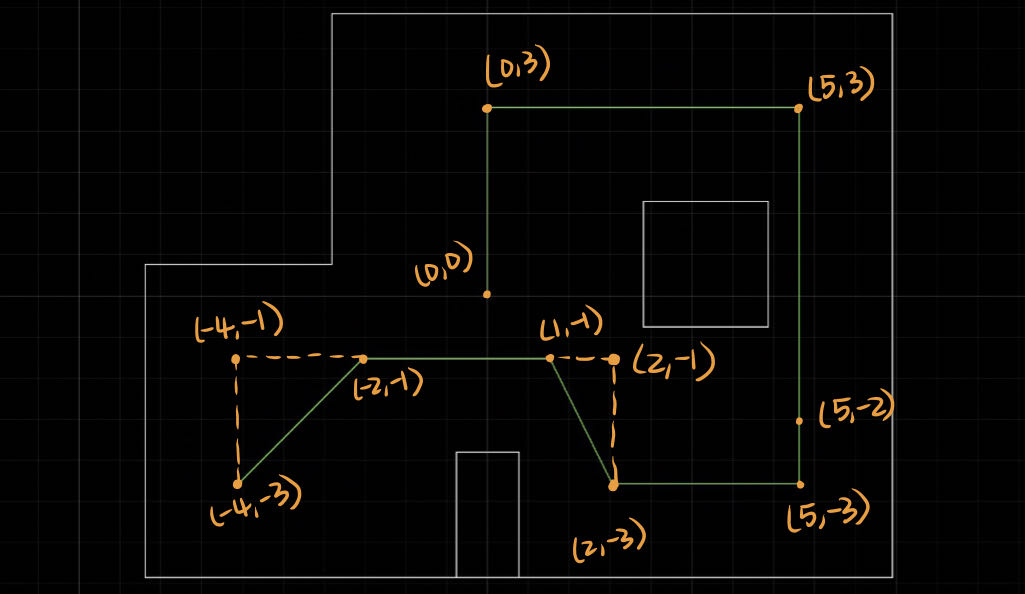 (0,3)
(5,3)
(0,0)
(-4,-1)
(1,-1)
(2,-1)
(-2,-1)
(5,-2)
(-4,-3)
(5,-3)
(2,-3)